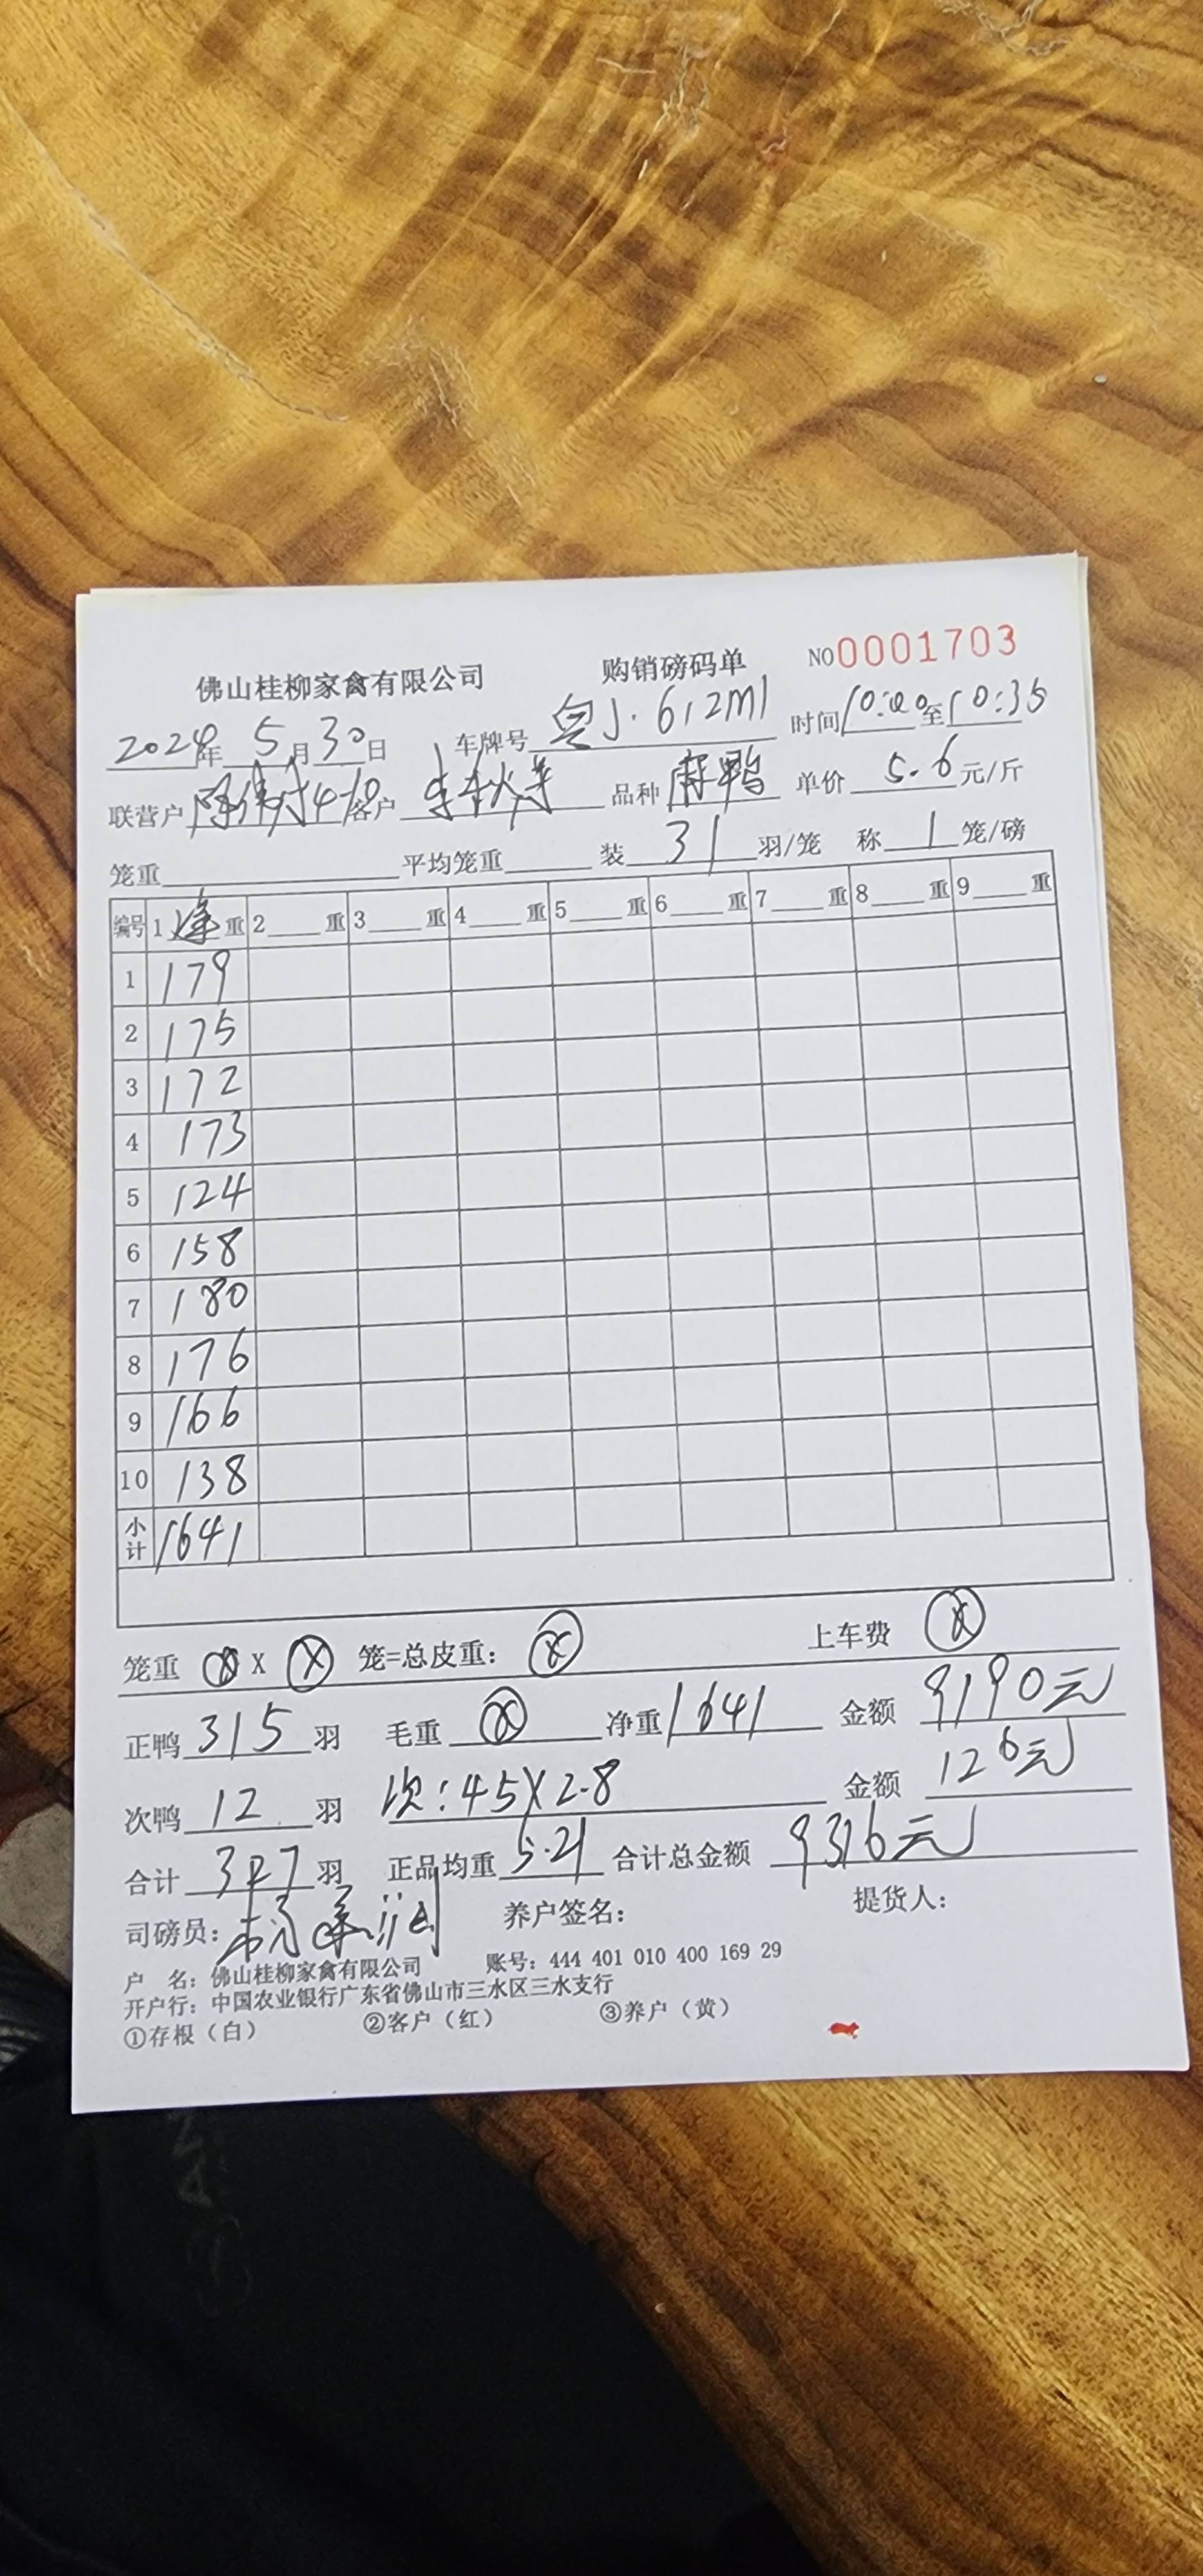 佛山桂柳家禽有限公司 购销磅码单 NO 0001703
2024年 5月30日 车牌号 粤J·612M1 时间10:00至10:35
联营户 陈伟 4-10 客户 李秋 品种 麻鸭 单价 5.6 元/斤
笼重 平均笼重 装 31 羽/笼 称 1 笼/磅
编号 1 净 重 2 重 3 重 4 重 5 重 6 重 7 重 8 重 9 重
1 179
2 175
3 172
4 173
5 124
6 158
7 180
8 176
9 166
10 138
小计 1641
笼重 ⊗ X ⊗ 笼=总皮重: ⊗ 上车费 ⊗
正鸭 315 羽 毛重 ⊗ 净重 1641 金额 9190元
次鸭 12 羽 次:45X2.8 金额 126元
合计 327 羽 正品均重 5.21 合计总金额 9316元
司磅员: 养户签名: 提货人:
户 名: 佛山桂柳家禽有限公司 账号: 444 401 010 400 169 29
开户行: 中国农业银行广东省佛山市三水区三水支行
①存根（白） ②客户（红） ③养户（黄）